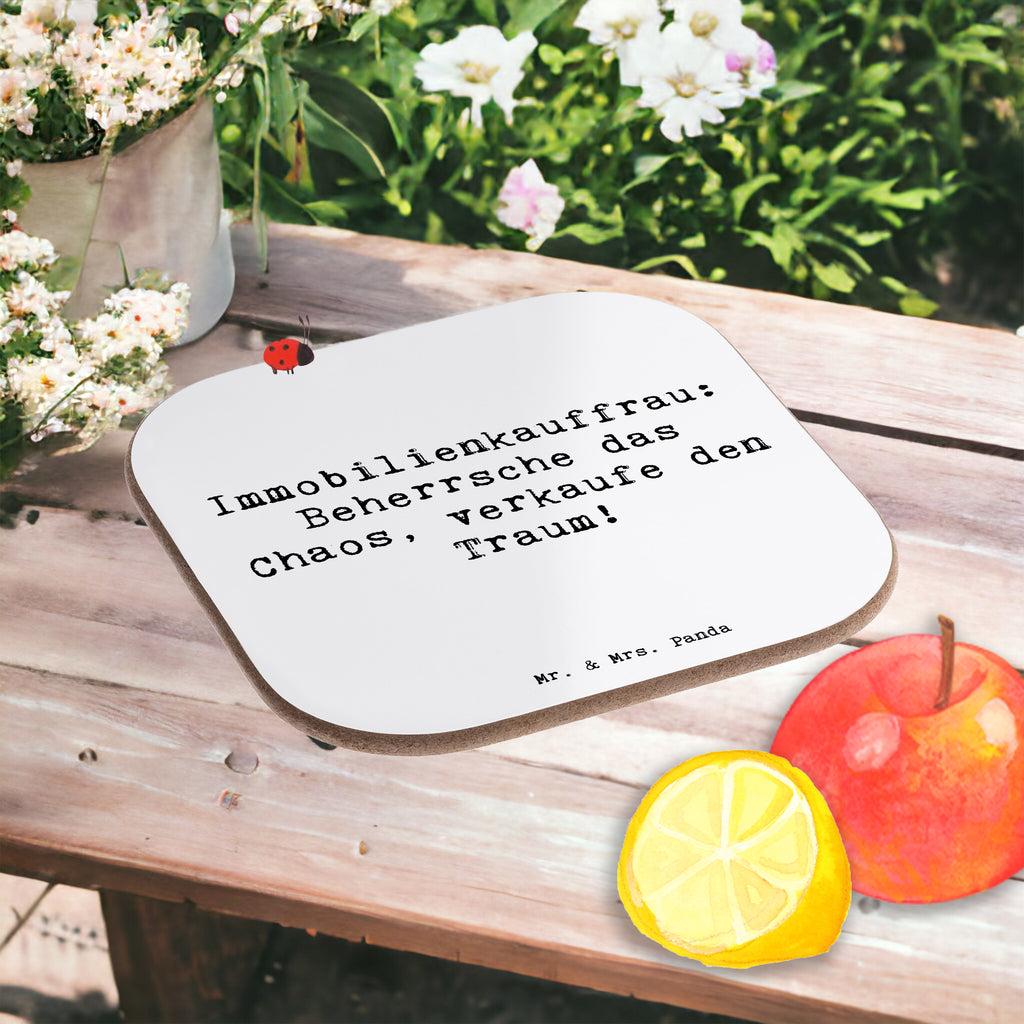 Immobilienkauffrau:
Beherrsche das
Chaos, verkaufe den
Traum!
Mr. & Mrs. Panda